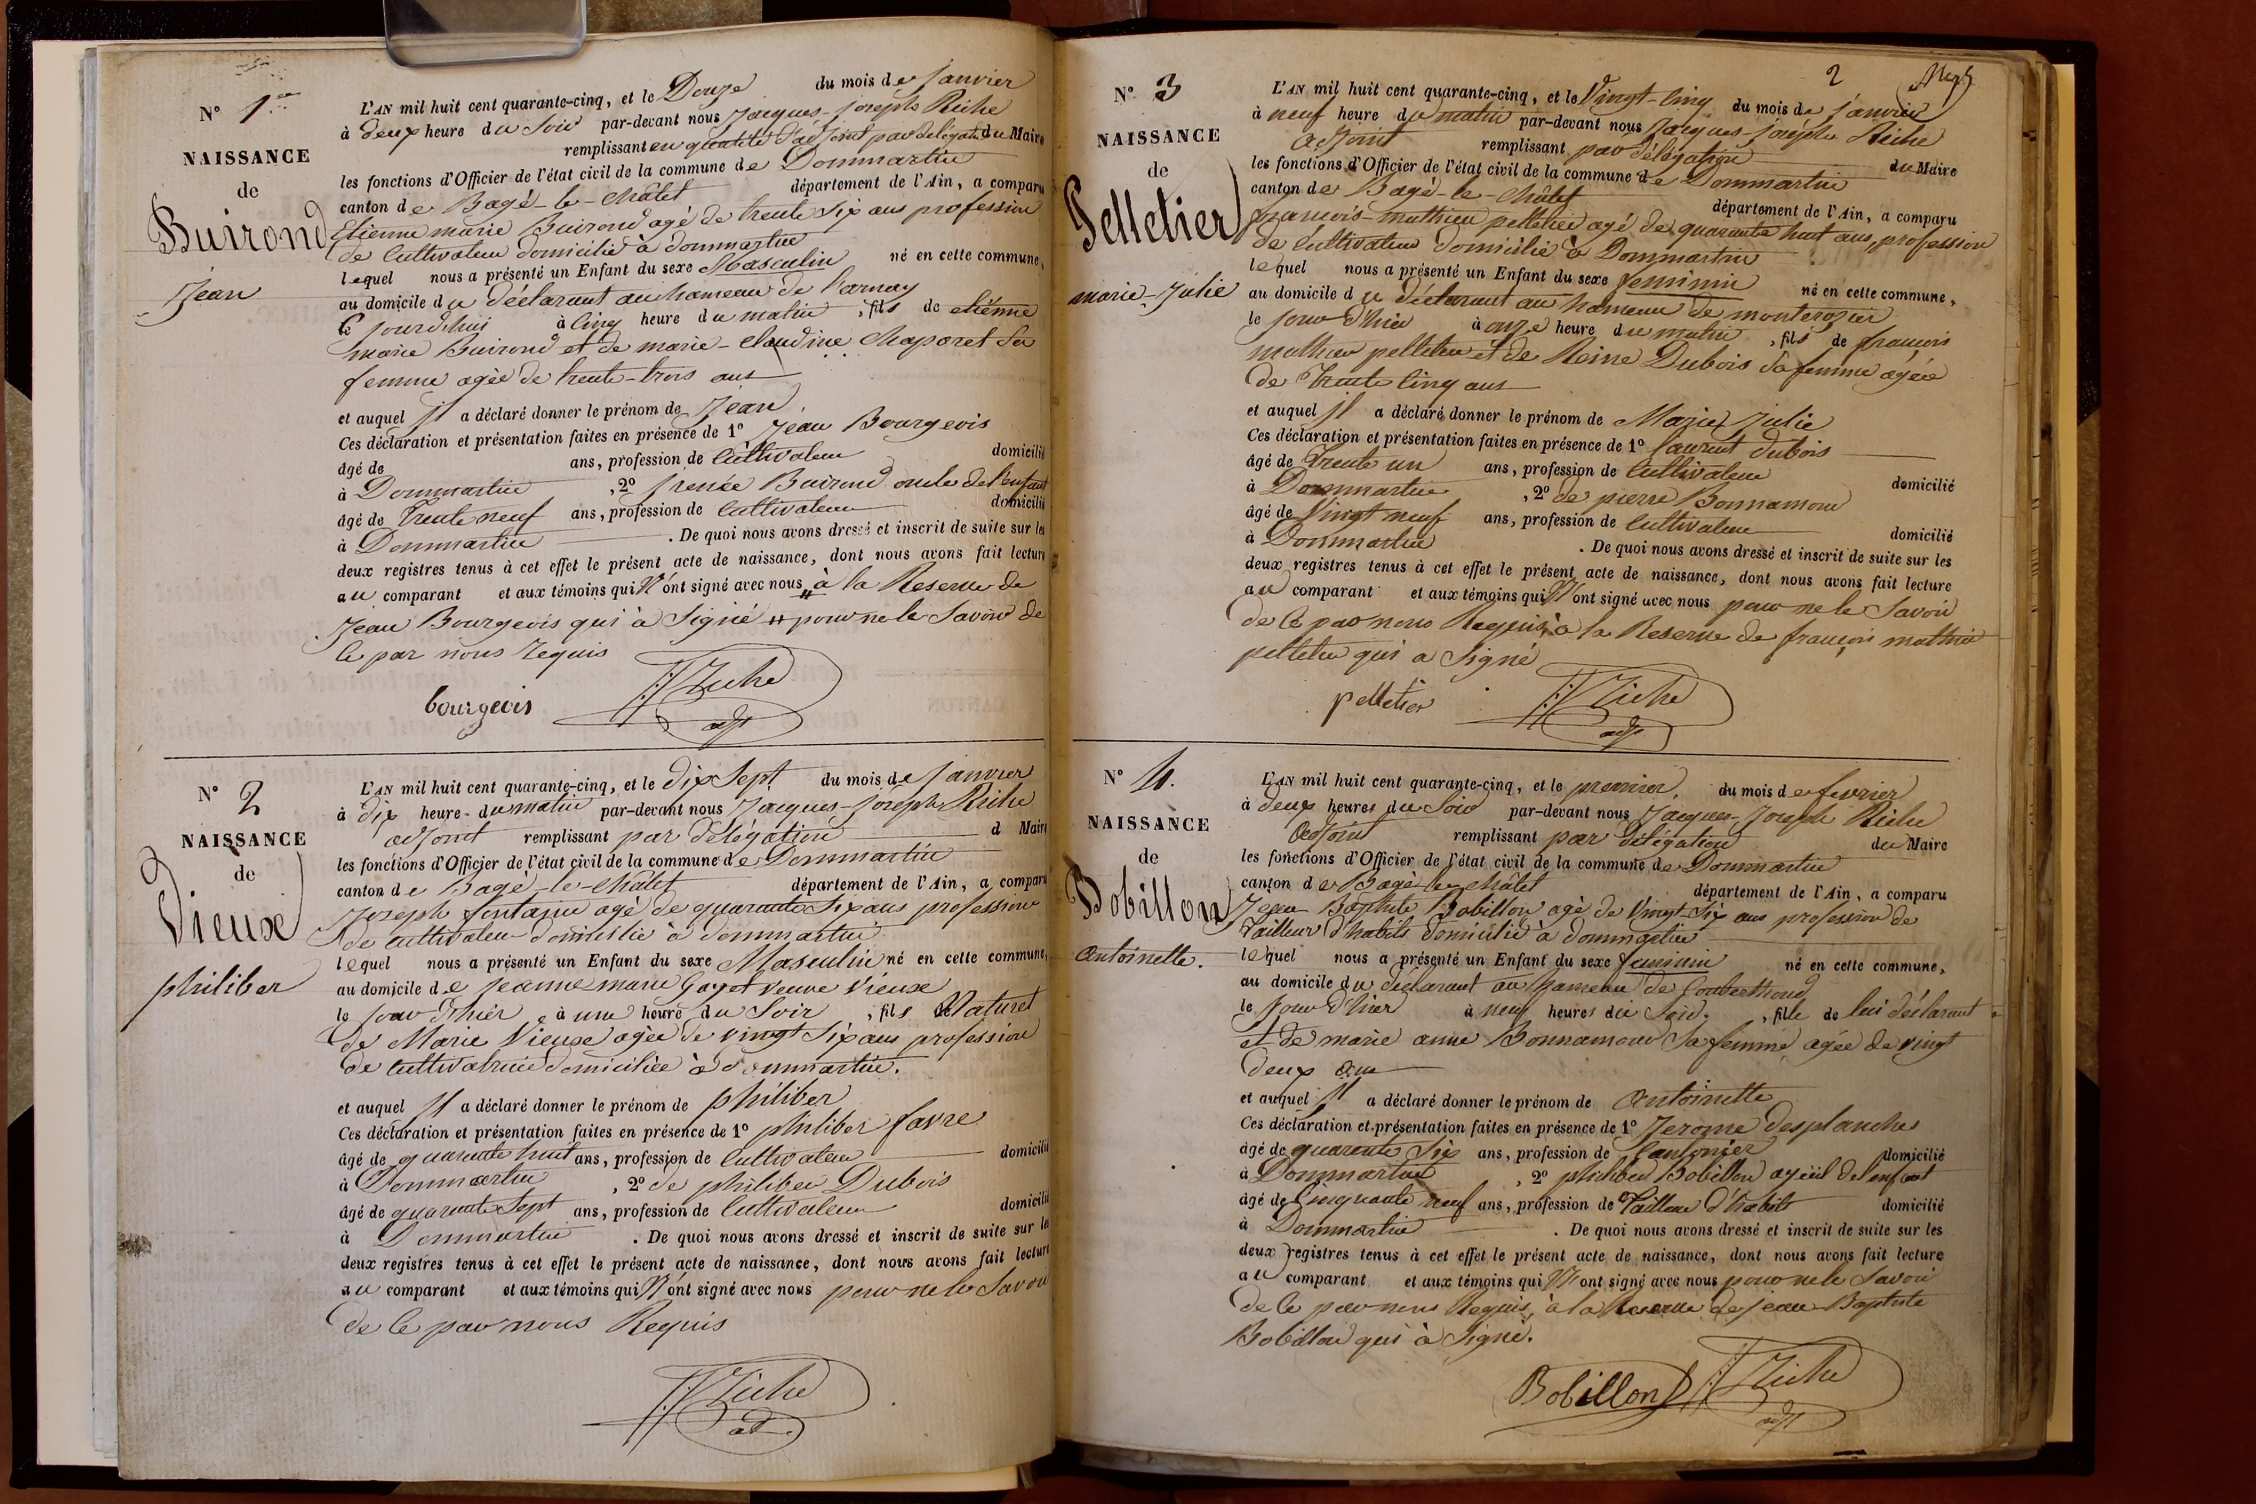 N° 1er
NAISSANCE
de
Buirond
Jean
L'AN mil huit cent quarante-cinq, et le Douze du mois de janvier
à deux heure du soir par-devant nous Jacques-joseph Riche
remplissant en qualité d'adjoint par délégation du Maire
les fonctions d'Officier de l'état civil de la commune de Dommartin
canton de Bagé-le-châtel département de l'Ain, a comparu
Etienne marie Buirond agé de trente six ans profession
de Cultivateur domicilié à dommartin
lequel nous a présenté un Enfant du sexe Masculin né en cette commune,
au domicile du déclarant au hameau de
le jourd'hui à cinq heure du matin , fils de etiénne
marie Buirond et de marie-Claudine Chaporet sa
femme agée de trente-trois ans
et auquel il a déclaré donner le prénom de Jean
Ces déclaration et présentation faites en présence de 1° Jean Bourgeois
âgé de ans, profession de Cultivateur domicilié
à Dommartin , 2° Buirond oncle de l'enfant
âgé de Trente neuf ans, profession de Cultivateur domicilié
à Dommartin . De quoi nous avons dressé et inscrit de suite sur les
deux registres tenus à cet effet le présent acte de naissance, dont nous avons fait lecture
au comparant et aux témoins qui N'ont signé avec nous à la Reserve de
Jean Bourgeois qui à Signé pour ne le Savoir de
ce par nous requis
bourgeois JJRiche
adjt
N° 2
NAISSANCE
de
Vieux
philiber
L'AN mil huit cent quarante-cinq, et le dix Sept du mois de janvier
à dix heure du matin par-devant nous Jacques-joseph Riche
adjoint remplissant par délégation d Maire
les fonctions d'Officier de l'état civil de la commune de Dommartin
canton de Bagé-le-châtel département de l'Ain, a comparu
Joseph fontaine agé de quarante Six ans profession
de cultivateur domicilié à dommartin
lequel nous a présenté un Enfant du sexe Masculin né en cette commune,
au domicile de jeanne marie Gayet veuve Vieux
le jour d'hier à une heure du Soir , fils Naturel
de Marie Vieux agée de vingt Six ans profession
de Cultivatrice domiciliée à dommartin.
et auquel il a déclaré donner le prénom de philiber
Ces déclaration et présentation faites en présence de 1° philiber favre
âgé de quarante huit ans, profession de Cultivateur domicilié
à Dommartin , 2° de philiber Dubois
âgé de quarante Sept ans, profession de Cultivateur domicilié
à Dommartin . De quoi nous avons dressé et inscrit de suite sur les
deux registres tenus à cet effet le présent acte de naissance, dont nous avons fait lecture
au comparant et aux témoins qui N'ont signé avec nous pour ne le Savoir
de Ce par nous Requis
JJRiche
ad
2
N° 3
NAISSANCE
de
Pelletier
marie-Julie
L'AN mil huit cent quarante-cinq, et le Vingt-Cinq du mois de janvier
à neuf heure du matin par-devant nous Jacques-joseph Riche
adjoint remplissant par délégation du Maire
les fonctions d'Officier de l'état civil de la commune de Dommartin
canton de Bagé-le-châtel département de l'Ain, a comparu
françois-mathieu pelletier agé de quarante huit ans, profession
de Cultivateur domicilié à Dommartin
lequel nous a présenté un Enfant du sexe feminin né en cette commune,
au domicile du déclarant au hameau de monterozier
le jour d'hier à onze heure du matin , fils de françois
mathieu pelletier et de Reine Dubois sa femme agée
de Trente Cinq ans
et auquel il a déclaré donner le prénom de Marie Julie
Ces déclaration et présentation faites en présence de 1° laurent dubois
âgé de Trente un ans, profession de Cultivateur domicilié
à Dommartin , 2° de pierre Bonnamour
âgé de Vingt neuf ans, profession de Cultivateur domicilié
à Dommartin . De quoi nous avons dressé et inscrit de suite sur les
deux registres tenus à cet effet le présent acte de naissance, dont nous avons fait lecture
au comparant et aux témoins qui N'ont signé avec nous pour ne le Savoir
de Ce par nous Requis à la Reserve de françois mathieu
pelletier qui a Signé
pelletier JJRiche
adjt
N° 4.
NAISSANCE
de
Bobillon
Antoinette.
L'AN mil huit cent quarante-cinq, et le premier du mois de fevrier
à deux heures du Soir par-devant nous Jacques-Joseph Riche
adjoint remplissant par délégation du Maire
les fonctions d'Officier de l'état civil de la commune de Dommartin
canton de Bagé-le-châtel département de l'Ain, a comparu
Jean Baptiste Bobillon agé de Vingt-Six ans profession de
Tailleur d'habits domicilié à dommartin
lequel nous a présenté un Enfant du sexe feminin né en cette commune,
au domicile du déclarant au hameau de
le jour d'hier à neuf heures du Soir. , fille de lui déclarant
et de marie anne Bonnamour Sa femme agée de vingt
deux ans
et auquel il a déclaré donner le prénom de Antoinette
Ces déclaration et présentation faites en présence de 1° Jerome desplanches
âgé de quarante Six ans, profession de Cantonier domicilié
à Dommartin , 2° philiber Bobillon ayeül de l'enfant
âgé de Cinquante neuf ans, profession de Tailleur d'habits domicilié
à Dommartin . De quoi nous avons dressé et inscrit de suite sur les
deux registres tenus à cet effet le présent acte de naissance, dont nous avons fait lecture
au comparant et aux témoins qui N'ont signé avec nous pour ne le Savoir
de Ce par nous Requis, à la Reserve de jean Baptiste
Bobillon qui à Signé.
Bobillon JJRiche
adjt